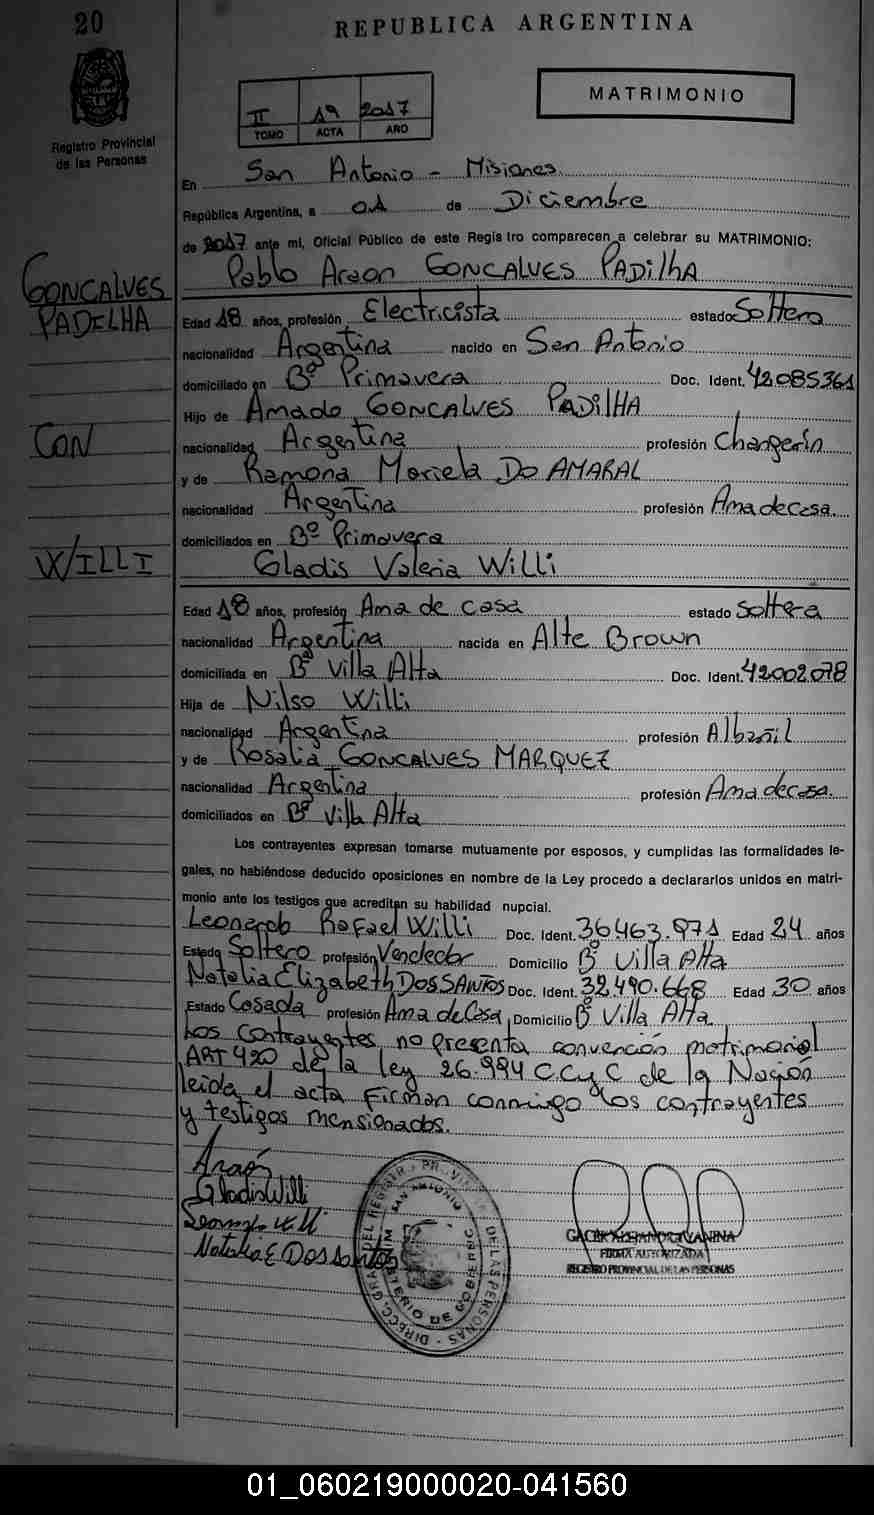 20
REPUBLICA ARGENTINA
Registro Provincial
de las Personas
II 19 2017
TOMO ACTA AÑO
MATRIMONIO
En San Antonio - Misiones
República Argentina, a 01 de Diciembre
de 2017 ante mi, Oficial Público de este Registro comparecen a celebrar su MATRIMONIO:
GONCALVES
PADELHA
CON
WILLI
Pablo Araon GONCALVES PADilHA
Edad 18 años, profesión Electricista estado Soltero
nacionalidad Argentina nacido en San Antonio
domiciliado en Bº Primavera Doc. Ident. 42085361
Hijo de Amado GONCALVES PADilHA
nacionalidad Argentina profesión Changerin
y de Ramona Mariela Do AMARAL
nacionalidad Argentina profesión Ama de casa
domiciliados en Bº Primavera
Gladis Valeria Willi
Edad 18 años, profesión Ama de casa estado soltera
nacionalidad Argentina nacida en Alte Brown
domiciliada en Bº Villa Alta Doc. Ident. 42002078
Hija de Nilso Willi
nacionalidad Argentina profesión Albañil
y de Rosalia GONCALVES MARQUEZ
nacionalidad Argentina profesión Ama de casa.
domiciliados en Bº Villa Alta
Los contrayentes expresan tomarse mutuamente por esposos, y cumplidas las formalidades le-
gales, no habiéndose deducido oposiciones en nombre de la Ley procedo a declararlos unidos en matri-
monio ante los testigos que acreditan su habilidad nupcial.
Leonardo Rafael Willi Doc. Ident. 36463.971 Edad 24 años
Estado Soltero profesión Vendedor Domicilio Bº Villa Alta
Natalia Elizabeth DOS SANTOS Doc. Ident. 32.490.668 Edad 30 años
Estado Casada profesión Ama de Casa Domicilio Bº Villa Alta
Los contrayentes no presenta convención matrimonial
ART 420 de la ley 26.994 C.C y C de la Nación
leida el acta Firman conmingo los contrayentes
y testigos mensionados.
Araón
Gladis Willi
Leonardo Willi
Natalia E Dos santos
DIRECC. GRAL. DEL REGISTR. PROVINCIAL DE LAS PERSONAS
SAN ANTONIO
MINISTERIO DE GOBIERNO
FIRMA AUTORIZADA
REGISTRO PROVINCIAL DE LAS PERSONAS
01_060219000020-041560